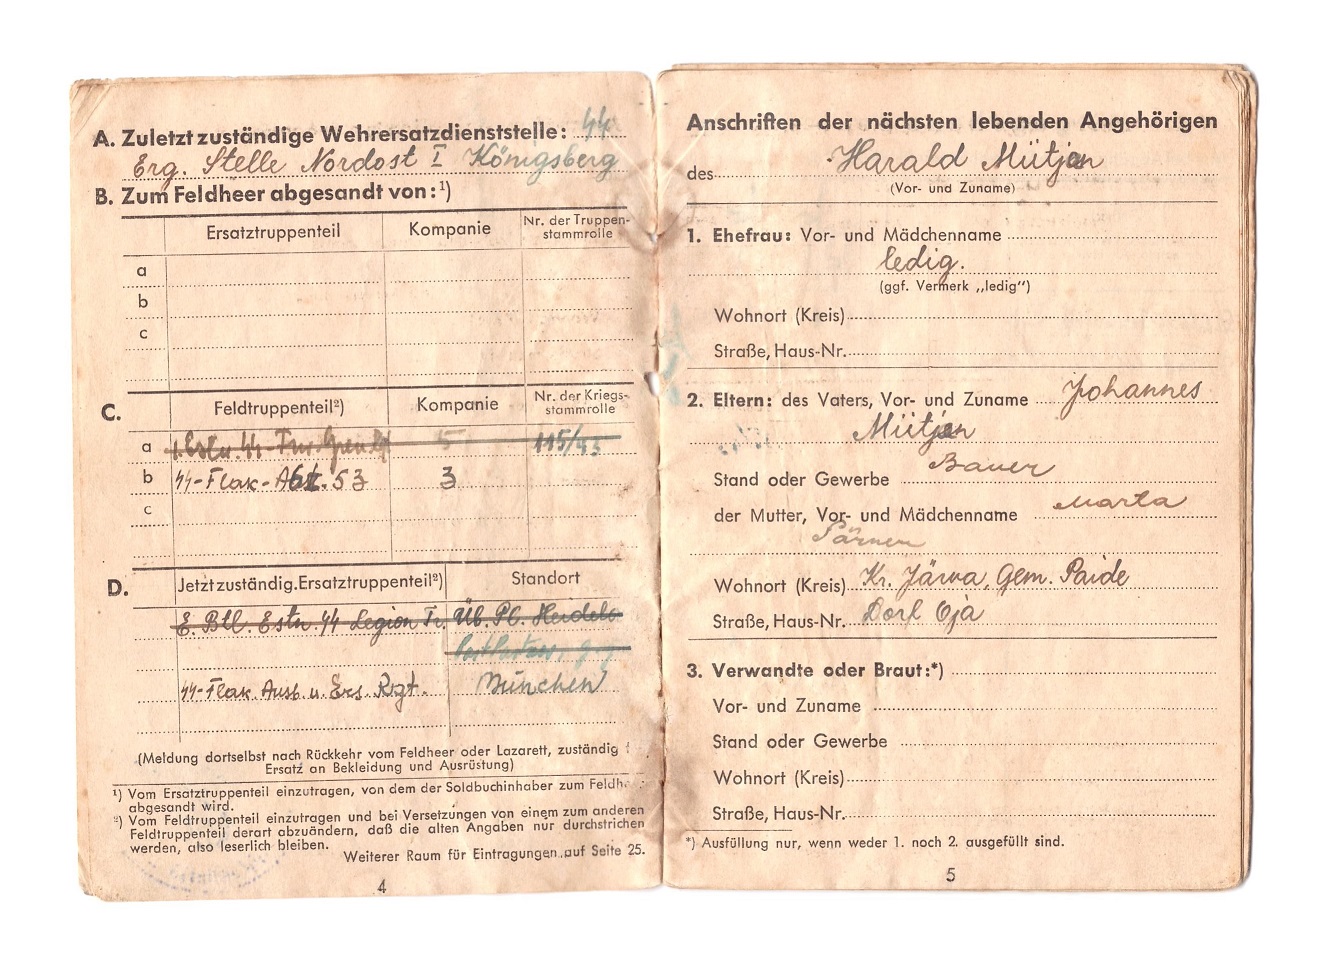 A. Zuletzt zuständige Wehrersatzdienststelle: ᛋᛋ
Erg. Stelle Nordost I Königsberg
B. Zum Feldheer abgesandt von:¹)
Ersatztruppenteil Kompanie Nr. der Truppen-
stammrolle
a
b
c
C. Feldtruppenteil²) Kompanie Nr. der Kriegs-
stammrolle
a 5 115/43
b ᛋᛋ-Flak-Abt. 53 3
c
D. Jetzt zuständig. Ersatztruppenteil²) Standort
E. Btl. Estn. ᛋᛋ Legion Tr. Üb. Pl. Heidela
ᛋᛋ-Flak. Ausb. u. Ers. Rgt. München
(Meldung dortselbst nach Rückkehr vom Feldheer oder Lazarett, zuständig
Ersatz an Bekleidung und Ausrüstung)
¹) Vom Ersatztruppenteil einzutragen, von dem der Soldbuchinhaber zum Feldh
abgesandt wird.
²) Vom Feldtruppenteil einzutragen und bei Versetzungen von einem zum anderen
Feldtruppenteil derart abzuändern, daß die alten Angaben nur durchstrichen
werden, also leserlich bleiben.
Weiterer Raum für Eintragungen auf Seite 25.
4
Anschriften der nächsten lebenden Angehörigen
des Harald Mütjen
(Vor- und Zuname)
1. Ehefrau: Vor- und Mädchenname
ledig.
(ggf. Vermerk „ledig")
Wohnort (Kreis)
Straße, Haus-Nr.
2. Eltern: des Vaters, Vor- und Zuname Johannes
Mütjen
Stand oder Gewerbe Bauer
der Mutter, Vor- und Mädchenname Marta
Pärnen
Wohnort (Kreis) Kr. Järva, Gem. Paide
Straße, Haus-Nr. Dorf Oja
3. Verwandte oder Braut:*)
Vor- und Zuname
Stand oder Gewerbe
Wohnort (Kreis)
Straße, Haus-Nr.
*) Ausfüllung nur, wenn weder 1. noch 2. ausgefüllt sind.
5